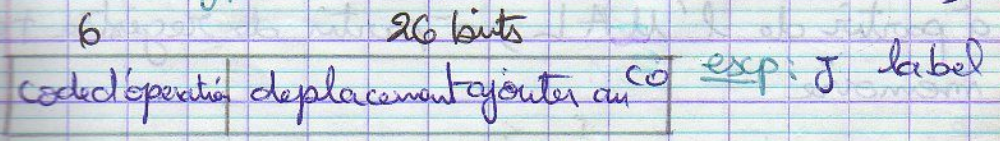 6 26 bits
code d'opération deplacement ajouter au CO exp: J label